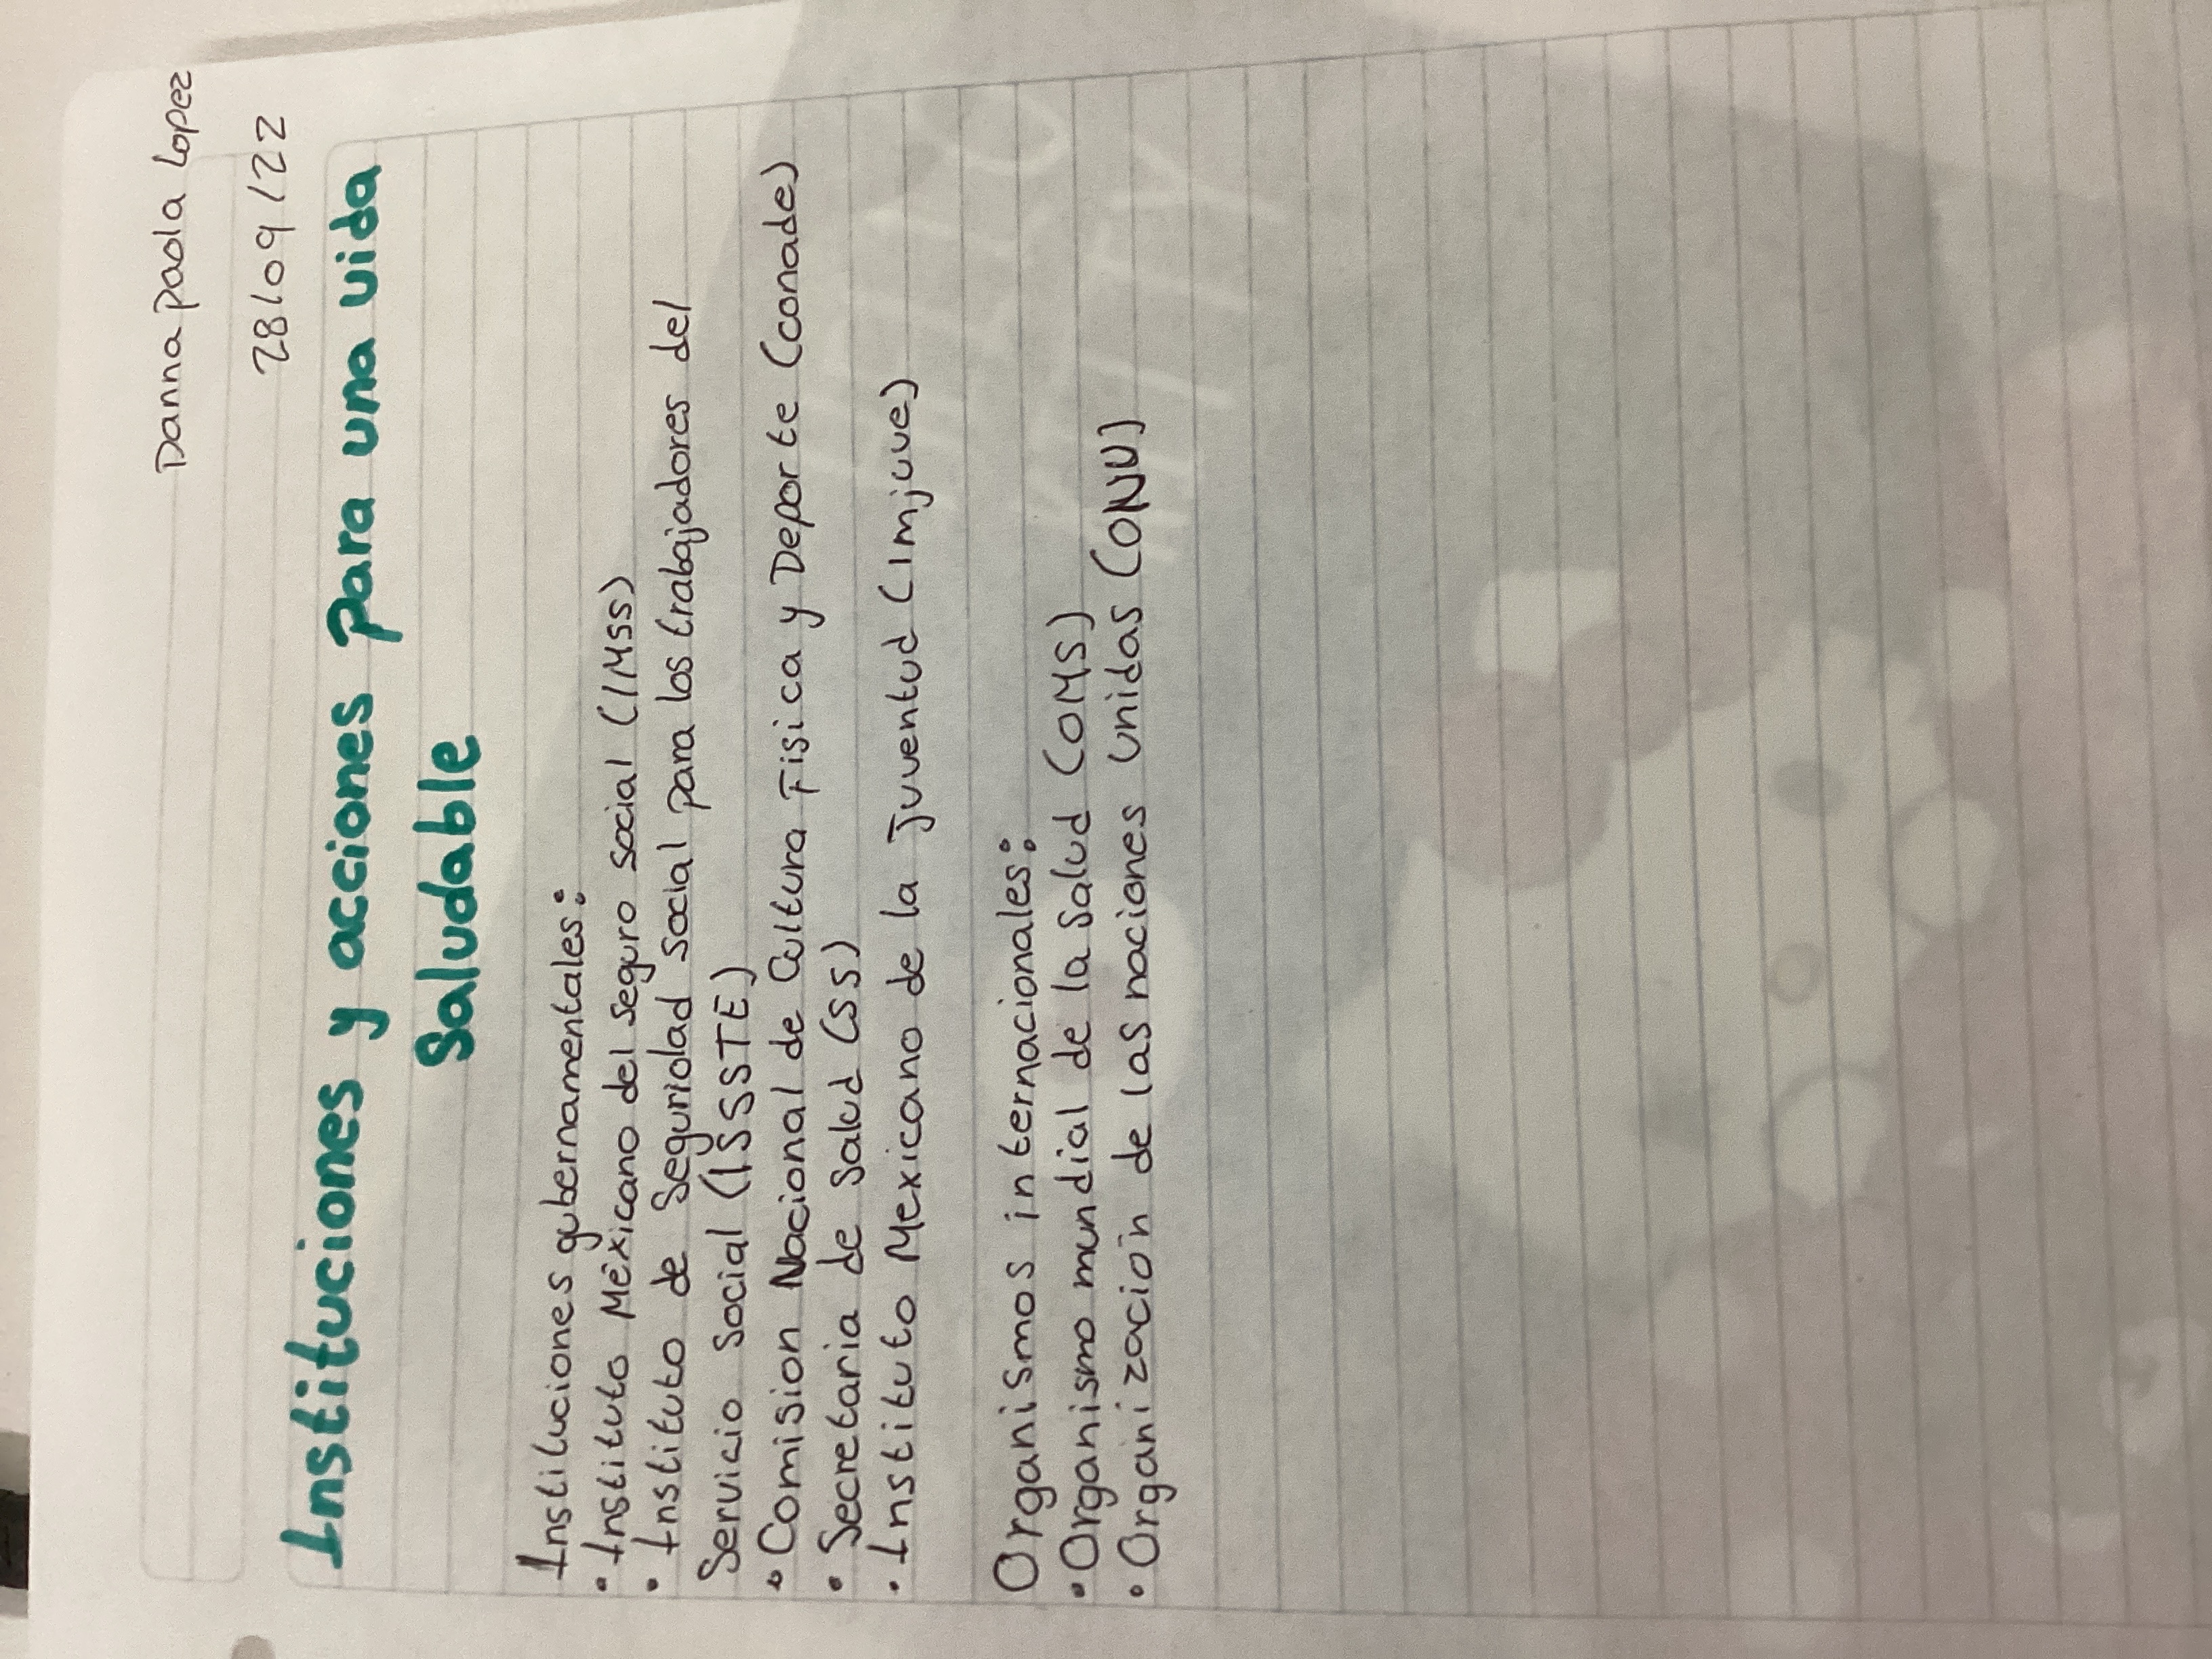 Danna paola lopez
28/09/22
Instituciones y acciones Para una vida
Saludable
Instituciones gubernamentales:
• Instituto Mexicano del seguro social (IMSS)
• Instituto de Seguridad social para los trabajadores del
Servicio social (ISSSTE)
• Comision Nacional de Cultura Fisica y Deporte (conade)
• Secretaria de Salud (SS)
• Instituto Mexicano de la Juventud (Imjuve)
Organismos internacionales:
• Organismo mundial de la Salud (OMS)
• Organización de las naciones unidas (ONU)